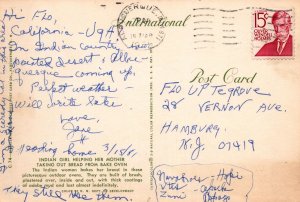 Hi Flo,
California - USA
In Indian County
painted desert & Albu-
querque coming up,
Perfect weather -
will write later
Love,
Jane
Heading home 3/15/81
They still use them
International
Post Card
15¢
Flo Uptegrove
28 Vernon Ave.
Hamburg
N.J. 07419
INDIAN GIRL HELPING HER MOTHER
TAKING OUT BREAD FROM BAKE OVEN
The Indian woman bakes her bread in these
picturesque outdoor ovens. They are built of brick,
plastered over, inside and out, with thick coatings
of adobe mud and last almost indefinitely.
Hopi
Utes
Zuni
Navajo